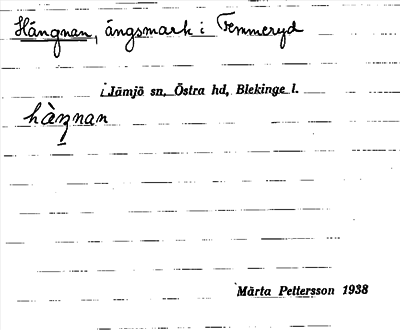 Hängnan, ängsmark i Femmeryd
i Jämjö sn, Östra hd, Blekinge l.
hàŋnan
Märta Pettersson 1938